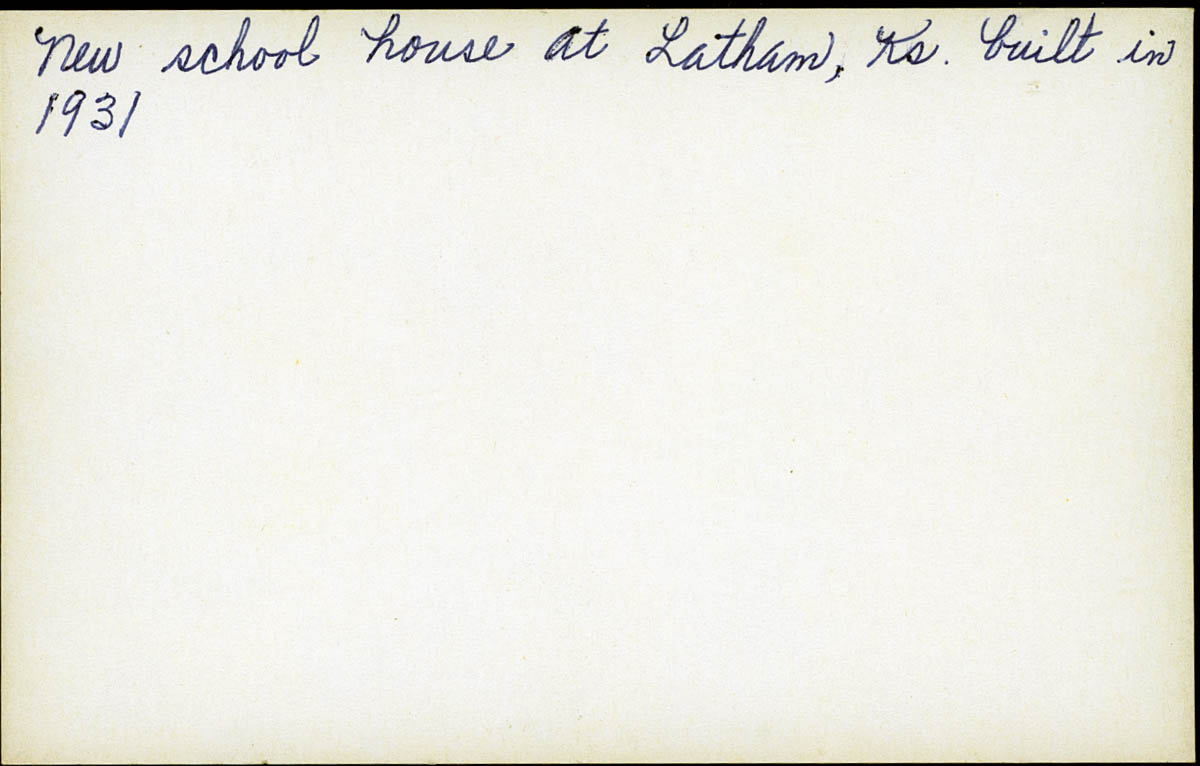 New school house at Latham, Ks. built in
1931